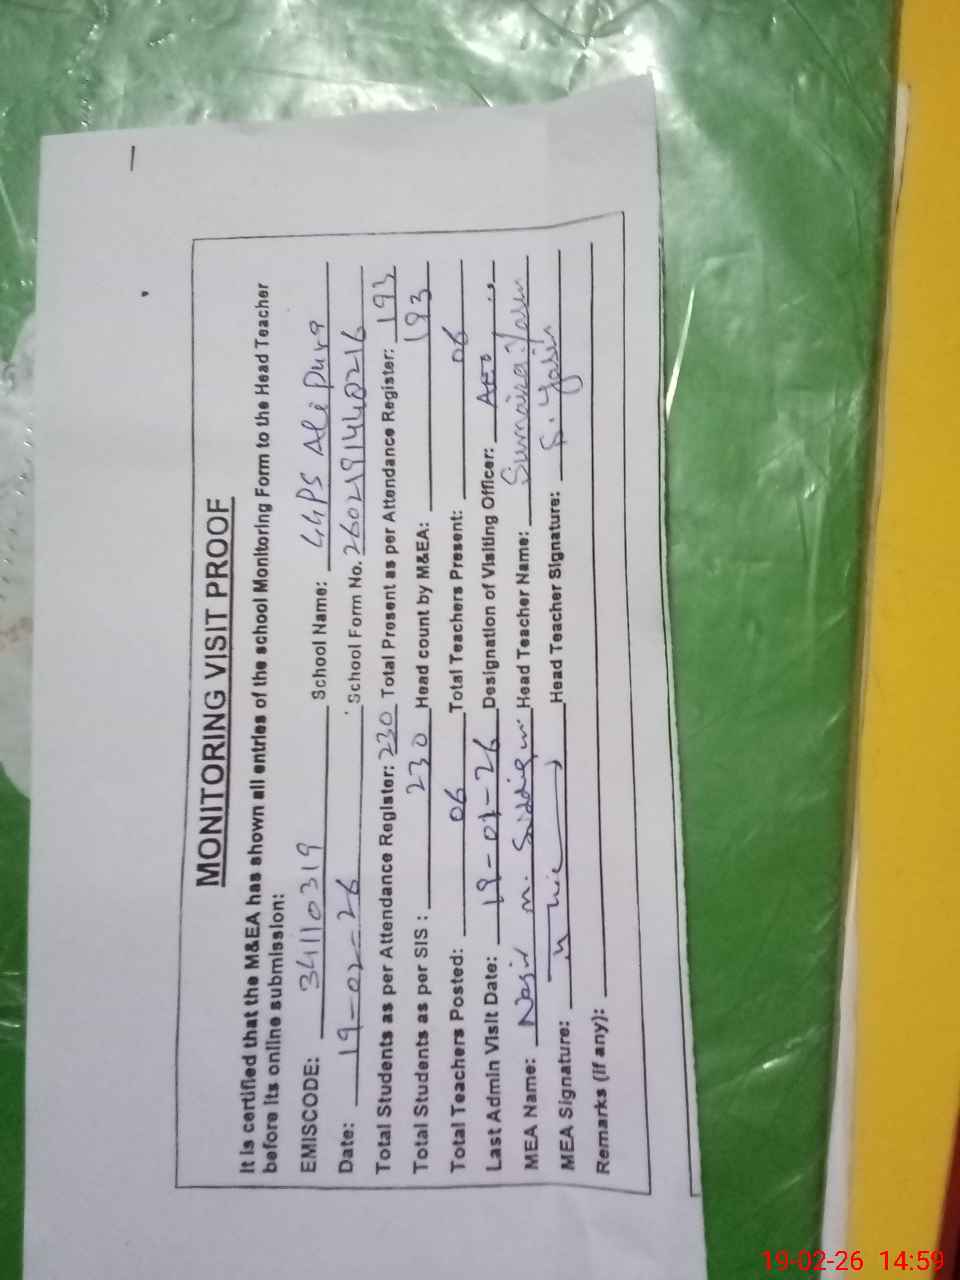 MONITORING VISIT PROOF
It is certified that the M&EA has shown all entries of the school Monitoring Form to the Head Teacher
before its online submission:
EMISCODE: 34110319 School Name: GGPS Ali Pura
Date: 19-02-26 School Form No. 2602191440216
Total Students as per Attendance Register: 230 Total Present as per Attendance Register: 193
Total Students as per SIS : 230 Head count by M&EA: 193
Total Teachers Posted: 06 Total Teachers Present: 06
Last Admin Visit Date: Designation of Visiting Officer: AEO
MEA Name: Nasir M. Head Teacher Name: Sumaira Yasin
MEA Signature: Head Teacher Signature: S. Yasin
Remarks (if any):
19-02-26 14:59